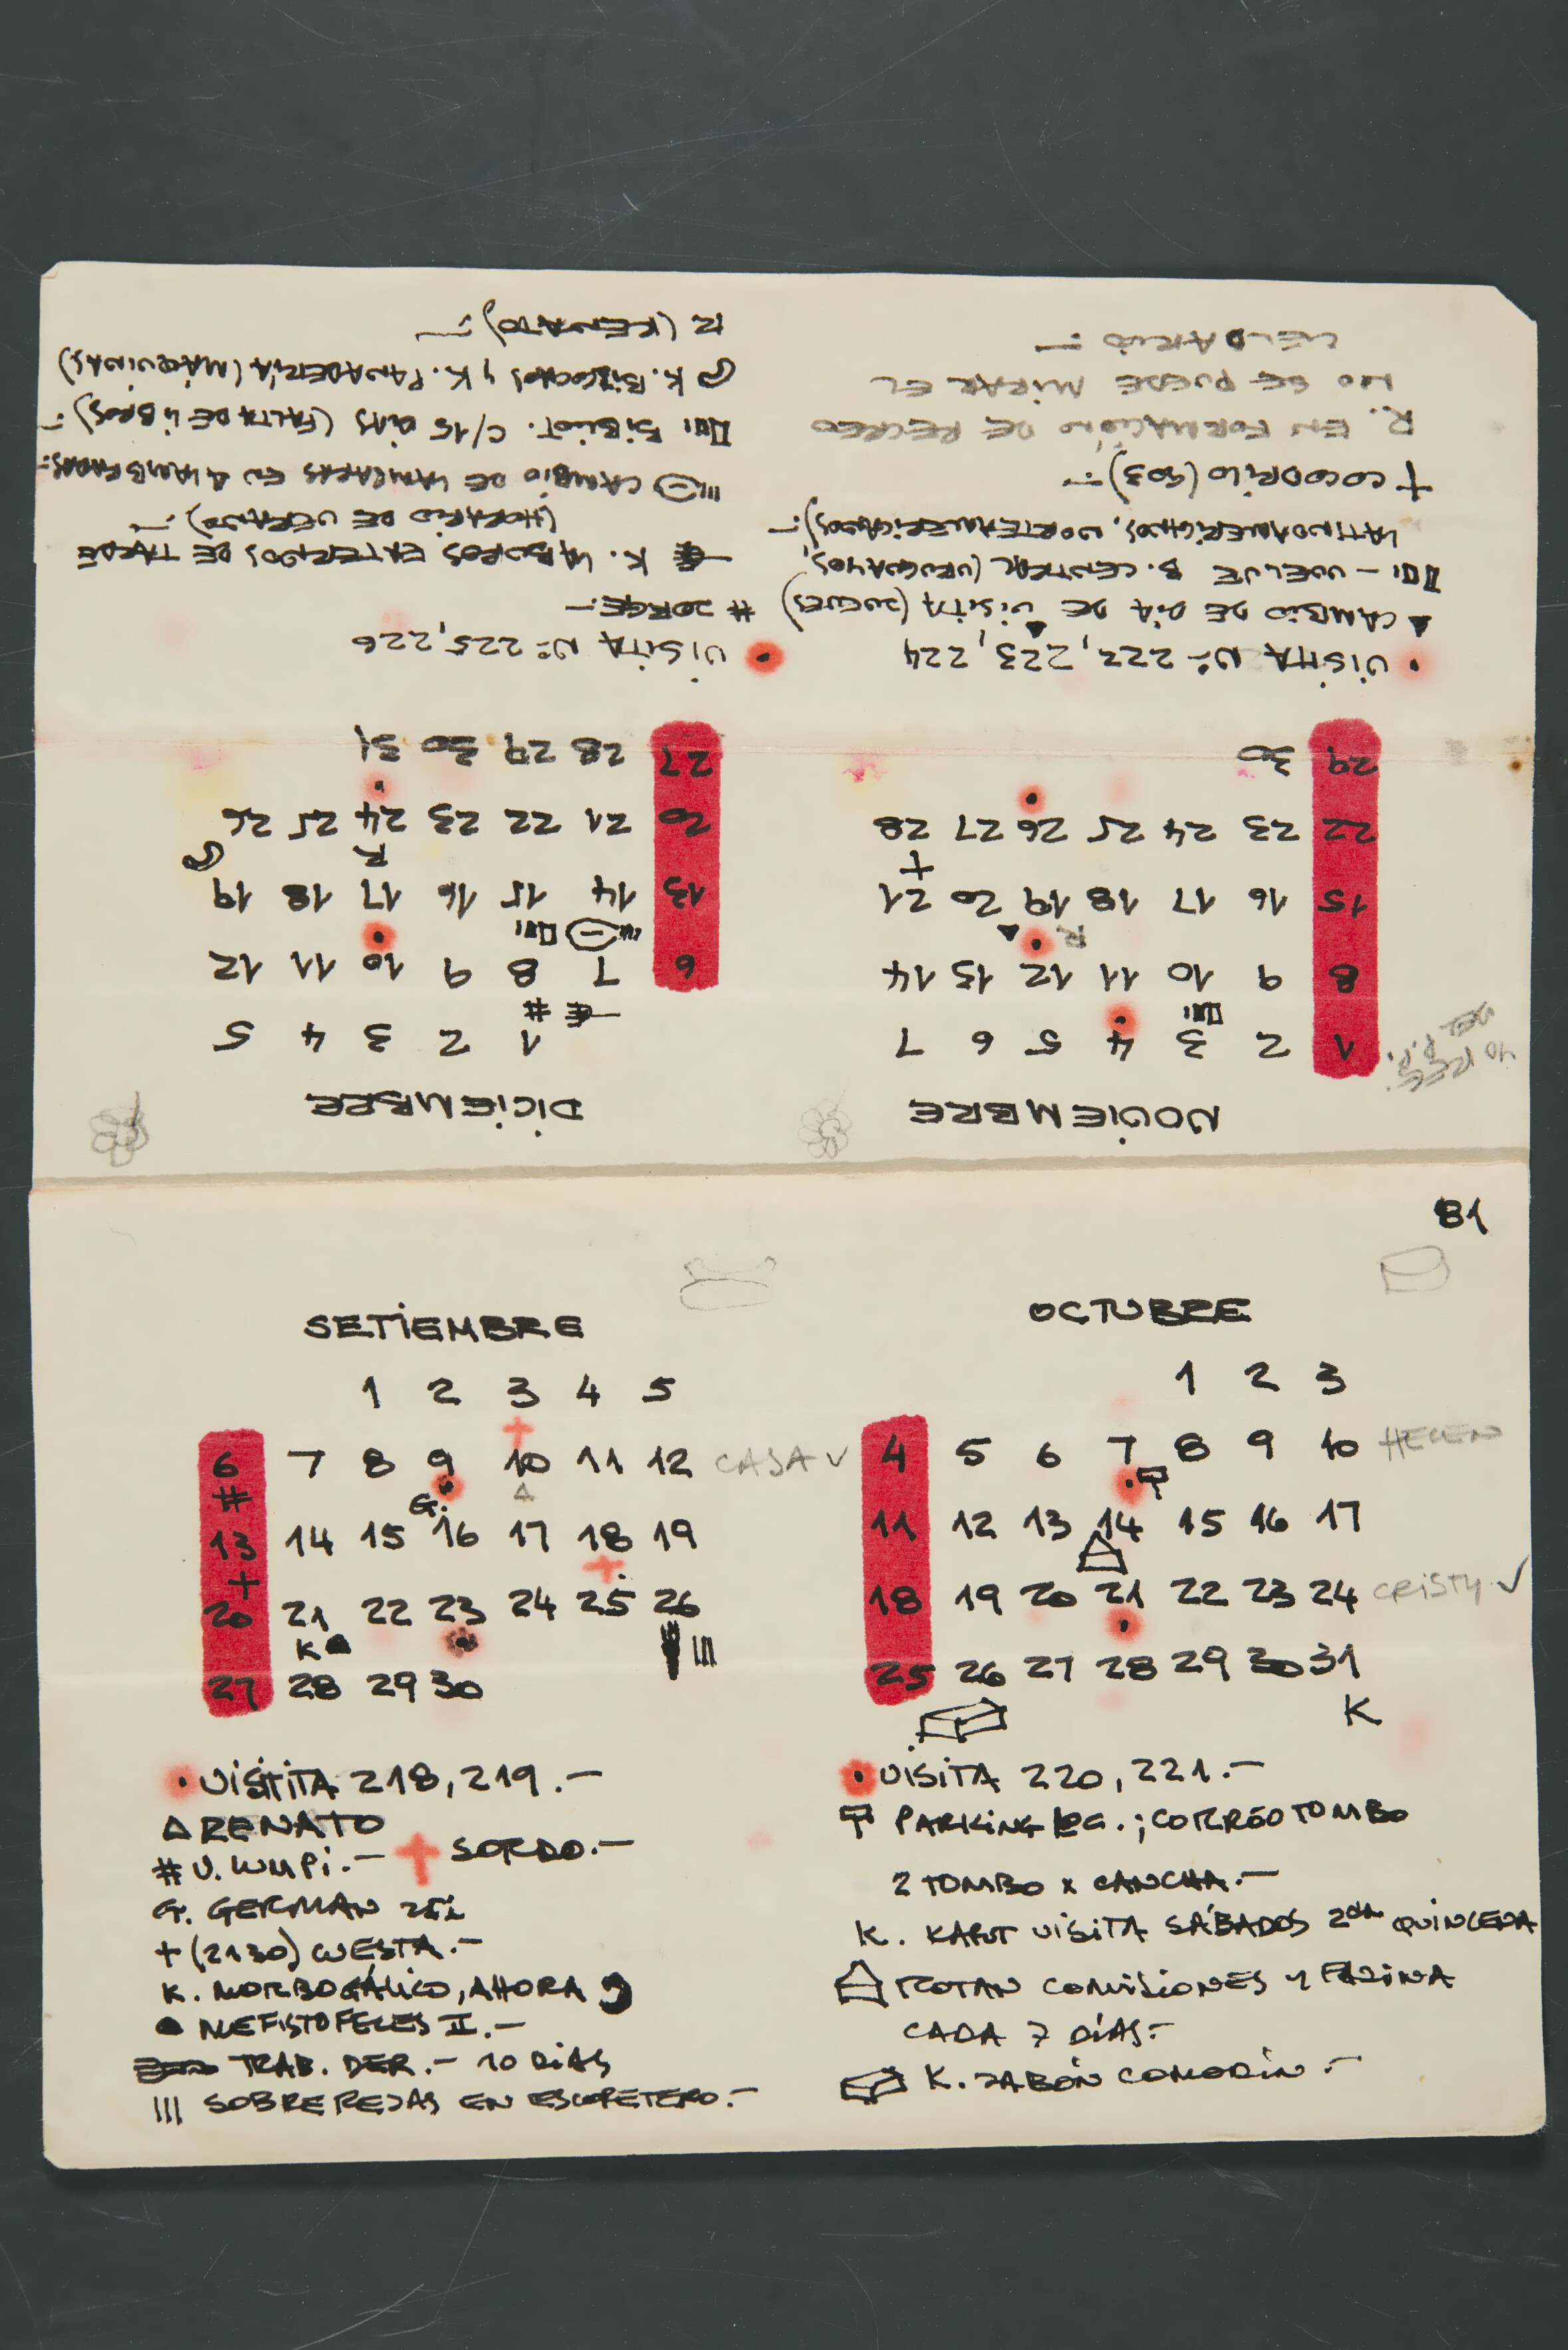 81
SETIEMBRE
1 2 3 4 5
6 7 8 9 10 11 12 CASA ✓
# G. Δ
13 14 15 16 17 18 19
+
20 21 22 23 24 25 26
K ● |||
27 28 29 30
• VISITA 218, 219.-
Δ RENATO
# V. WMPI.- + SORDO.-
G. GERMAN
+ (2130) CUESTA.-
K. MORBOGÁLICO, AHORA
● MEFISTOFELES II.-
TRAB. DER.- 10 DIAS
||| SOBRE REJAS EN ESCOPETERO.-
OCTUBRE
1 2 3
4 5 6 7 8 9 10 HELEN
11 12 13 14 15 16 17
18 19 20 21 22 23 24 CRISTY ✓
25 26 27 28 29 30 31
K
• VISITA 220, 221.-
PARKING ; CORREO TOMBO
2 TOMBO x CANCHA.-
K. KAPUT VISITA SÁBADOS 2da QUINCENA
ROTAN COMISIONES Y FAJINA
CADA 7 DÍAS.-
K. JABÓN COMODÍN.-
NOVIEMBRE
1 2 3 4 5 6 7
8 9 10 11 12 13 14
R
15 16 17 18 19 20 21
+
22 23 24 25 26 27 28
29 30
• VISITA Nº 222, 223, 224
▲ CAMBIO DE DIA DE VISITA (JUEVES)
- VUELVE B. CENTRAL (URUGUAYOS,
LATINOAMERICANOS, NORTEAMERICANOS).-
+ COCODRILO (503).-
R. EN FORMACIÓN DE RECREO
NO SE PUEDE MIRAR EL
CELDARIO.-
DICIEMBRE
1 2 3 4 5
#
6 7 8 9 10 11 12
13 14 15 16 17 18 19
R
20 21 22 23 24 25 26
27 28 29 30 31
• VISITA Nº 225, 226
# JORGE.-
K. LABORES EXTERNOS DE TARDE
(HORARIO DE VERANO).-
CAMBIO DE LAMPARAS EN ALAMBRADAS.-
BIBLIOT. C/15 DÍAS (FALTA DE LIBROS).-
K. BIZCOCHOS Y K. PANADERÍA (MÁQUINAS)
R (RENATO).-